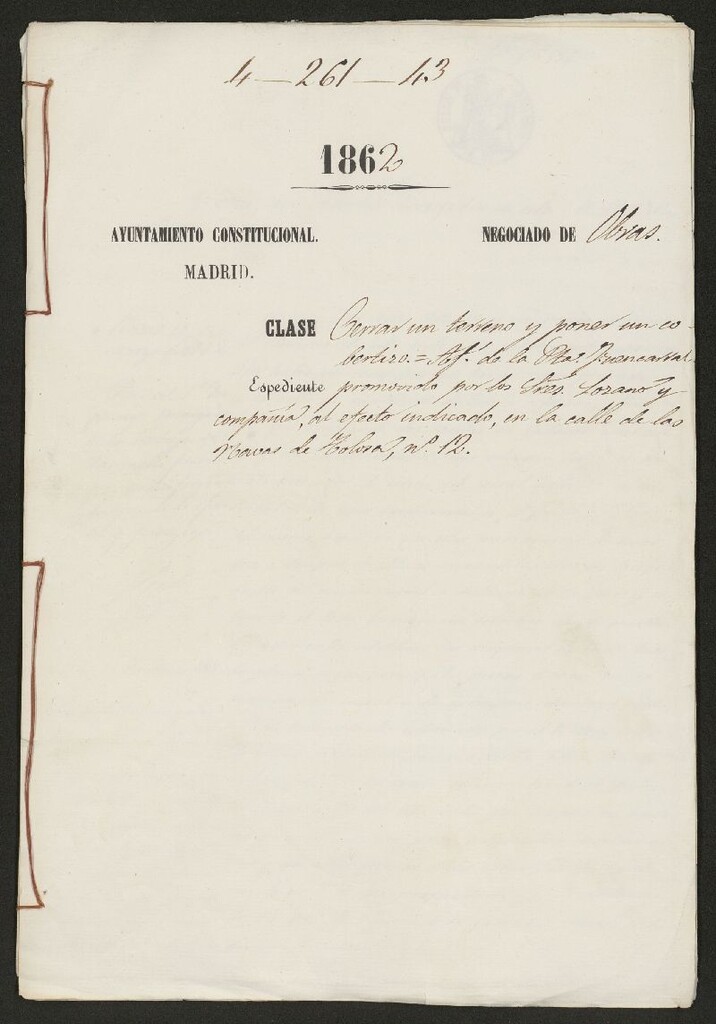 4-261-43
1862
AYUNTAMIENTO CONSTITUCIONAL. NEGOCIADO DE Obras.
MADRID.
CLASE Cerrar un terreno y poner un co-
bertizo.=Af.ˢ de la Pta. Fuencarral.
Espediente promovido por los Sres. Lozano y
compañía, al efecto indicado, en la calle de las
Navas de Tolosa, nº. 12.